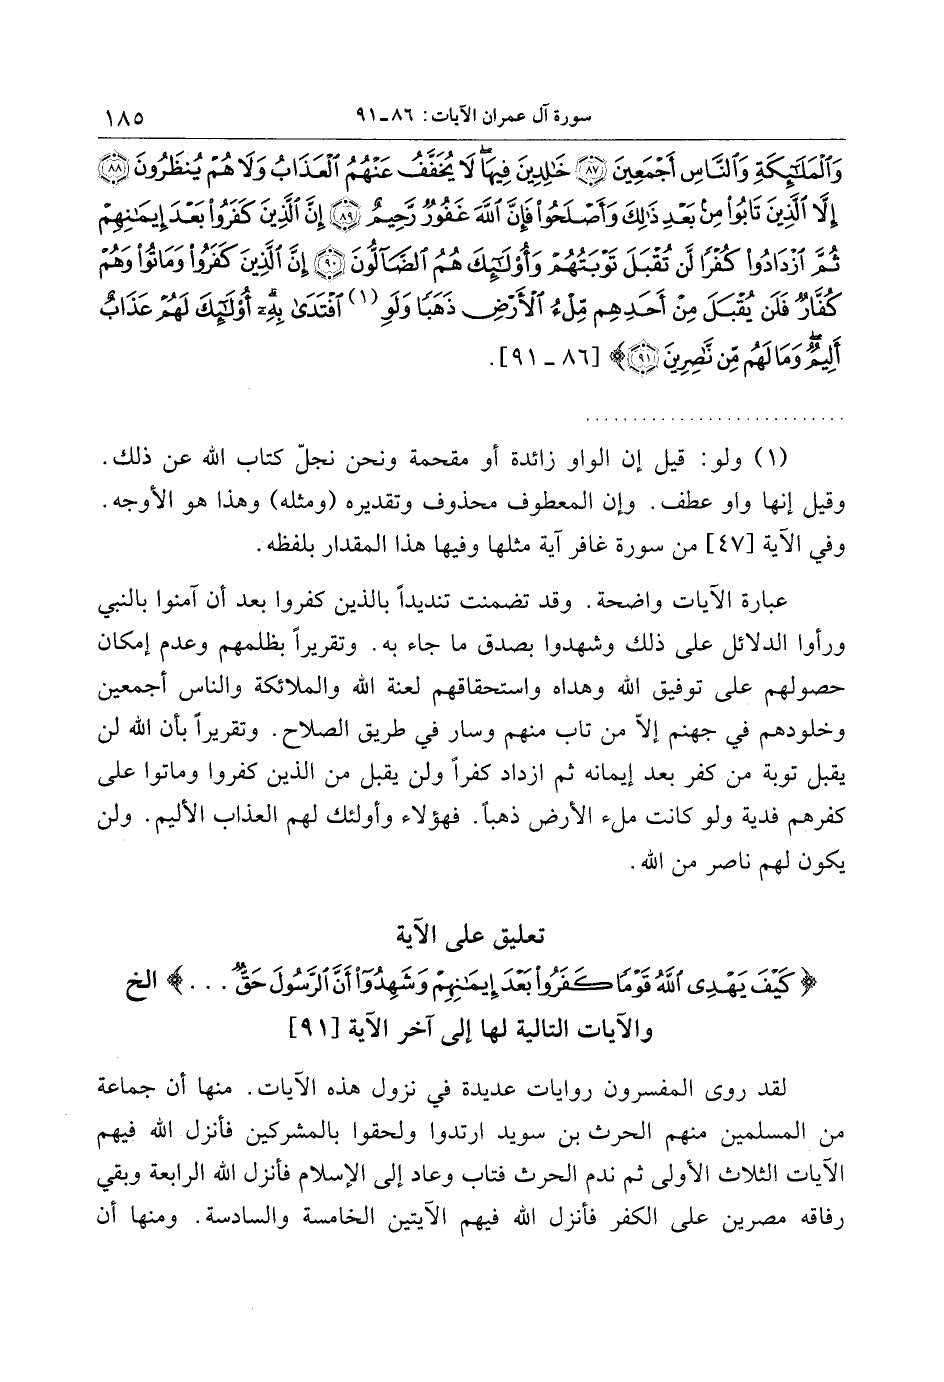 سورة آل عمران الآيات: ٨٦ـ٩١
١٨٥
وَٱلْمَلَٰٓئِكَةِ وَٱلنَّاسِ أَجْمَعِينَ ﴿٨٧﴾ خَٰلِدِينَ فِيهَا ۖ لَا يُخَفَّفُ عَنْهُمُ ٱلْعَذَابُ وَلَا هُمْ يُنظَرُونَ ﴿٨٨﴾
إِلَّا ٱلَّذِينَ تَابُوا۟ مِنۢ بَعْدِ ذَٰلِكَ وَأَصْلَحُوا۟ فَإِنَّ ٱللَّهَ غَفُورٌ رَّحِيمٌ ﴿٨٩﴾ إِنَّ ٱلَّذِينَ كَفَرُوا۟ بَعْدَ إِيمَٰنِهِمْ
ثُمَّ ٱزْدَادُوا۟ كُفْرًا لَّن تُقْبَلَ تَوْبَتُهُمْ وَأُو۟لَٰٓئِكَ هُمُ ٱلضَّآلُّونَ ﴿٩٠﴾ إِنَّ ٱلَّذِينَ كَفَرُوا۟ وَمَاتُوا۟ وَهُمْ
كُفَّارٌ فَلَن يُقْبَلَ مِنْ أَحَدِهِم مِّلْءُ ٱلْأَرْضِ ذَهَبًا وَلَوِ (١) ٱفْتَدَىٰ بِهِۦٓ ۗ أُو۟لَٰٓئِكَ لَهُمْ عَذَابٌ
أَلِيمٌ ۖ وَمَا لَهُم مِّن نَّٰصِرِينَ ﴿٩١﴾﴾ [٨٦ ـ ٩١].
(١) ولو: قيل إن الواو زائدة أو مقحمة ونحن نجلّ كتاب الله عن ذلك.
وقيل إنها واو عطف. وإن المعطوف محذوف وتقديره (ومثله) وهذا هو الأوجه.
وفي الآية [٤٧] من سورة غافر آية مثلها وفيها هذا المقدار بلفظه.
عبارة الآيات واضحة. وقد تضمنت تنديداً بالذين كفروا بعد أن آمنوا بالنبي
ورأوا الدلائل على ذلك وشهدوا بصدق ما جاء به. وتقريراً بظلمهم وعدم إمكان
حصولهم على توفيق الله وهداه واستحقاقهم لعنة الله والملائكة والناس أجمعين
وخلودهم في جهنم إلاّ من تاب منهم وسار في طريق الصلاح. وتقريراً بأن الله لن
يقبل توبة من كفر بعد إيمانه ثم ازداد كفراً ولن يقبل من الذين كفروا وماتوا على
كفرهم فدية ولو كانت ملء الأرض ذهباً. فهؤلاء وأولئك لهم العذاب الأليم. ولن
يكون لهم ناصر من الله.
تعليق على الآية
﴿ كَيْفَ يَهْدِى ٱللَّهُ قَوْمًا كَفَرُوا۟ بَعْدَ إِيمَٰنِهِمْ وَشَهِدُوٓا۟ أَنَّ ٱلرَّسُولَ حَقٌّ ... ﴾ الخ
والآيات التالية لها إلى آخر الآية [٩١]
لقد روى المفسرون روايات عديدة في نزول هذه الآيات. منها أن جماعة
من المسلمين منهم الحرث بن سويد ارتدوا ولحقوا بالمشركين فأنزل الله فيهم
الآيات الثلاث الأولى ثم ندم الحرث فتاب وعاد إلى الإسلام فأنزل الله الرابعة وبقي
رفاقه مصرين على الكفر فأنزل الله فيهم الآيتين الخامسة والسادسة. ومنها أن